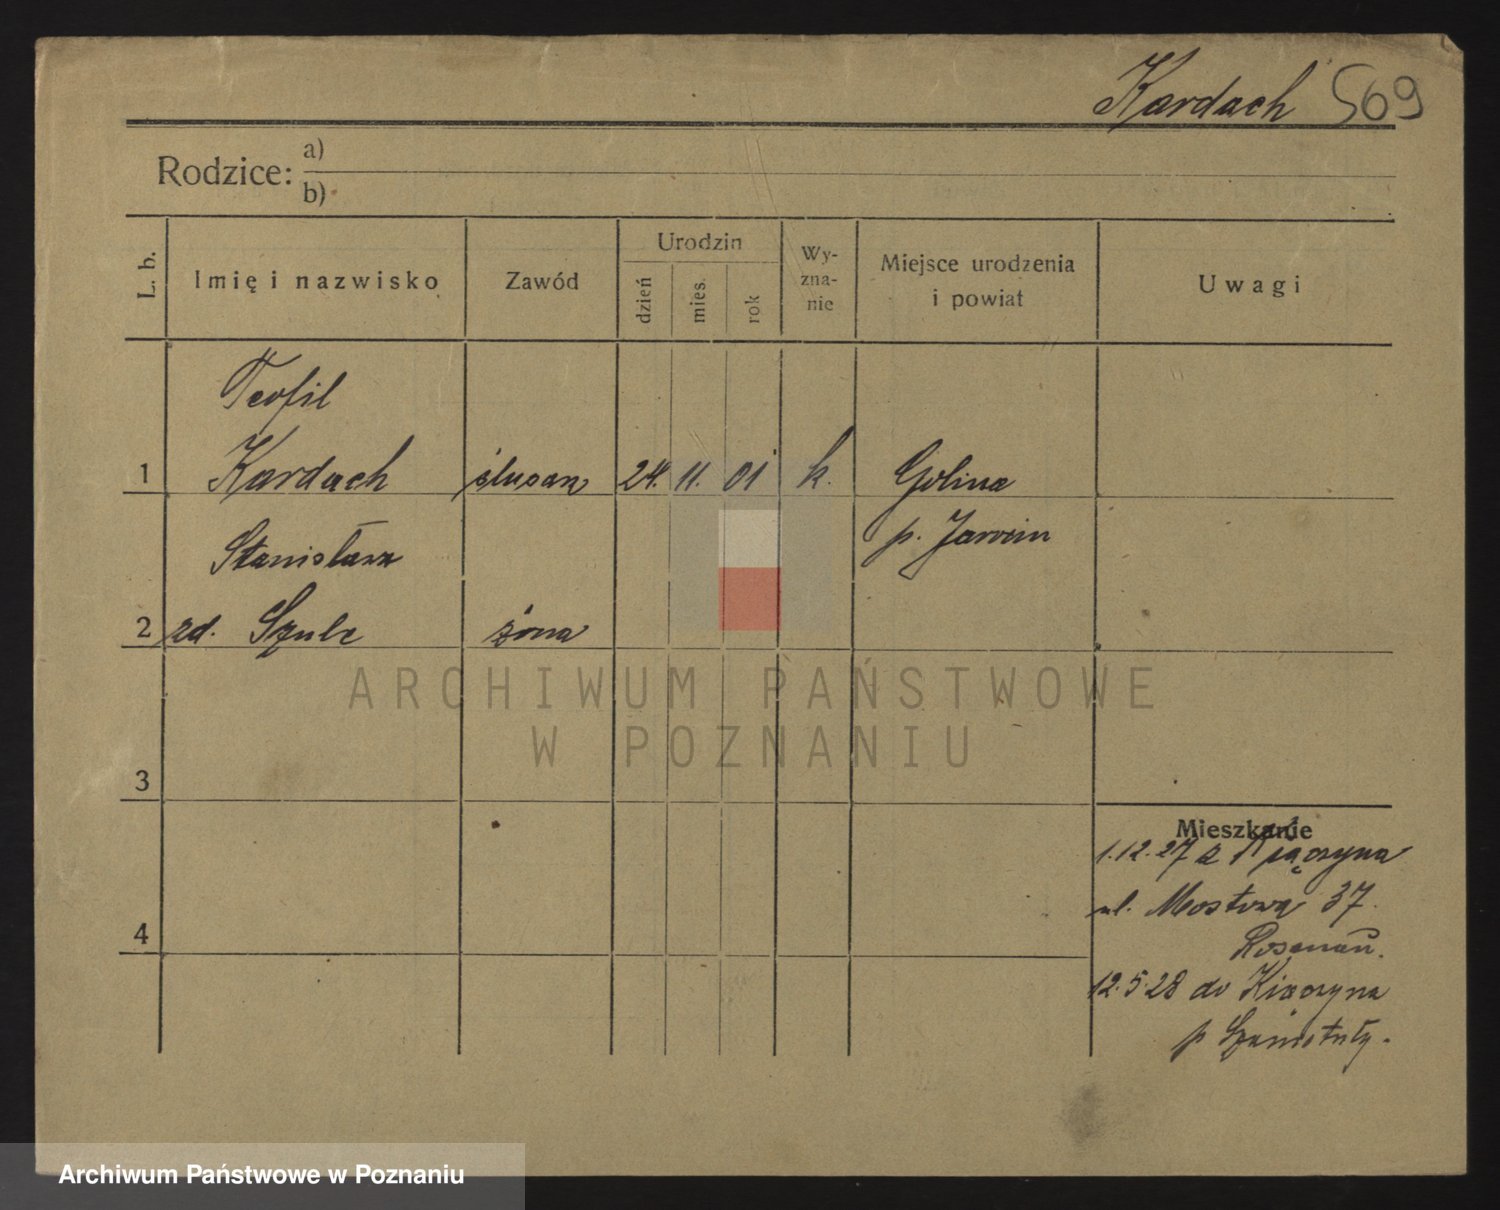 Kardach 569
Rodzice: a)
b)
L. b.
Imię i nazwisko
Zawód
Urodzin
dzień
mies.
rok
Wy-
zna-
nie
Miejsce urodzenia
i powiat
Uwagi
Teofil
1 Kardach ślusarz 24. 11. 01 k. Golina
p. Jarocin
Stanisława
2 zd. Szulc żona
ARCHIWUM PAŃSTWOWE
W POZNANIU
3
Mieszkanie
1.12.27 z Kiączyna
ul. Mostowa 37.
4
Rosenau.
12.5.28 do Kiączyna
p Szamotuły.
Archiwum Państwowe w Poznaniu